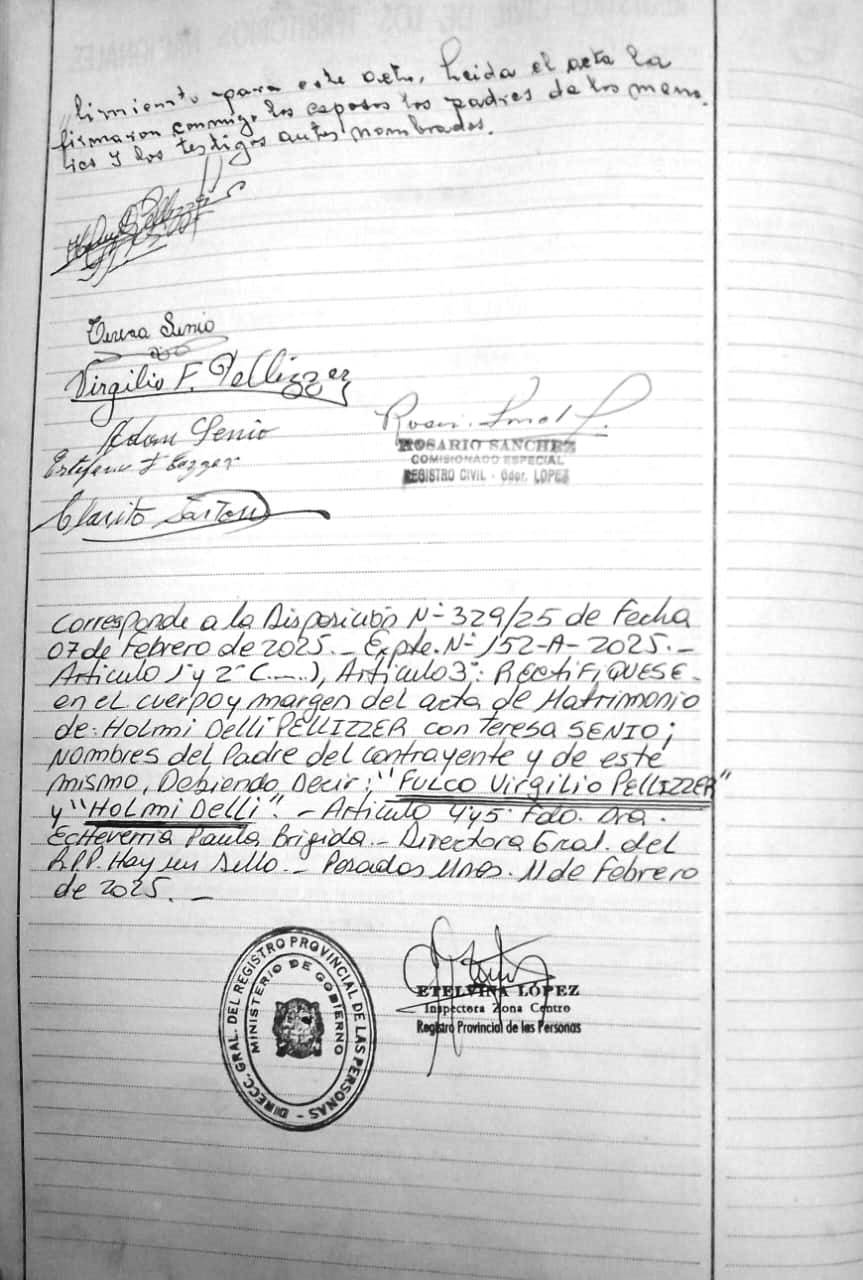 limiento para este acto, Leida el acta la
firmaron conmigo los esposos los padres de los meno.
res y los testigos antes nombrados.
Teresa Senio
Virgilio F. Pellizzer
Adam Senio
ROSARIO SANCHEZ
COMISIONADO ESPECIAL
REGISTRO CIVIL - Gdor. LOPEZ
Corresponde a la Disposición N- 329/25 de Fecha
07 de Febrero de 2025.- Expte. N- 152-A-2025.-
Articulo 1° y 2° (.....), Articulo 3°: RECTIFIQUESE-
en el cuerpo y margen del acta de Matrimonio
de: HOLMI DELLI PELLIZZER con Teresa SENIO;
NOMBRES del Padre del contrayente y de este
mismo, Debiendo Decir: "FULCO Virgilio PELLIZZER"
y "HOLMI DELLI". - Articulo 4y5° Fdo. Dra.
ECHEVERRIA Paula Brigida.- Directora Gral. del
R.P.P. Hay un Sello.- Posadas Mnes. 11 de Febrero
de 2025.-
DIRECC. GRAL. DEL REGISTRO PROVINCIAL DE LAS PERSONAS -
MINISTERIO DE GOBIERNO
ETELVINA LOPEZ
Inspectora Zona Centro
Registro Provincial de las Personas